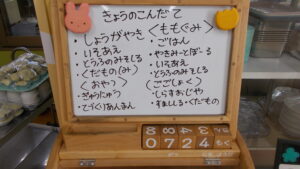 きょうのこんだて
・しょうがやき
・いそあえ
・とうふのみそしる
・くだもの(み)
(おやつ)
・ぎゅうにゅう
・てづくりあんまん
<ももぐみ>
・ごはん
・やきみーとぼーる
・いそあえ
・とうふのみそしる
(ごごしょく)
・しらすおじや
・すましじる・くだもの
0724